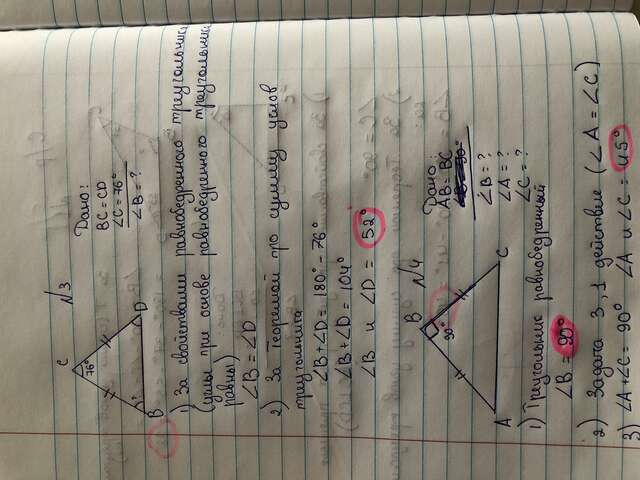 N3
C
76°
B
D
Дано:
BC = CD
∠C = 76°
∠B = ?
1) За свойствами равнобедренного треугольника
(углы при основе равнобедренного треугольника
равны)
∠B = ∠D
2) За теоремой про сумму углов
треугольника
∠B + ∠D = 180° - 76°
∠B + ∠D = 104°
∠B и ∠D = 52°
N4
B
90°
A
C
Дано:
AB = BC
∠B = 90°
∠B = ?
∠A = ?
∠C = ?
1) Треугольник равнобедренный
∠B = 90°
2) Задача 3, 1 действие (∠A = ∠C)
3) ∠A + ∠C = 90° ∠A и ∠C = 45°